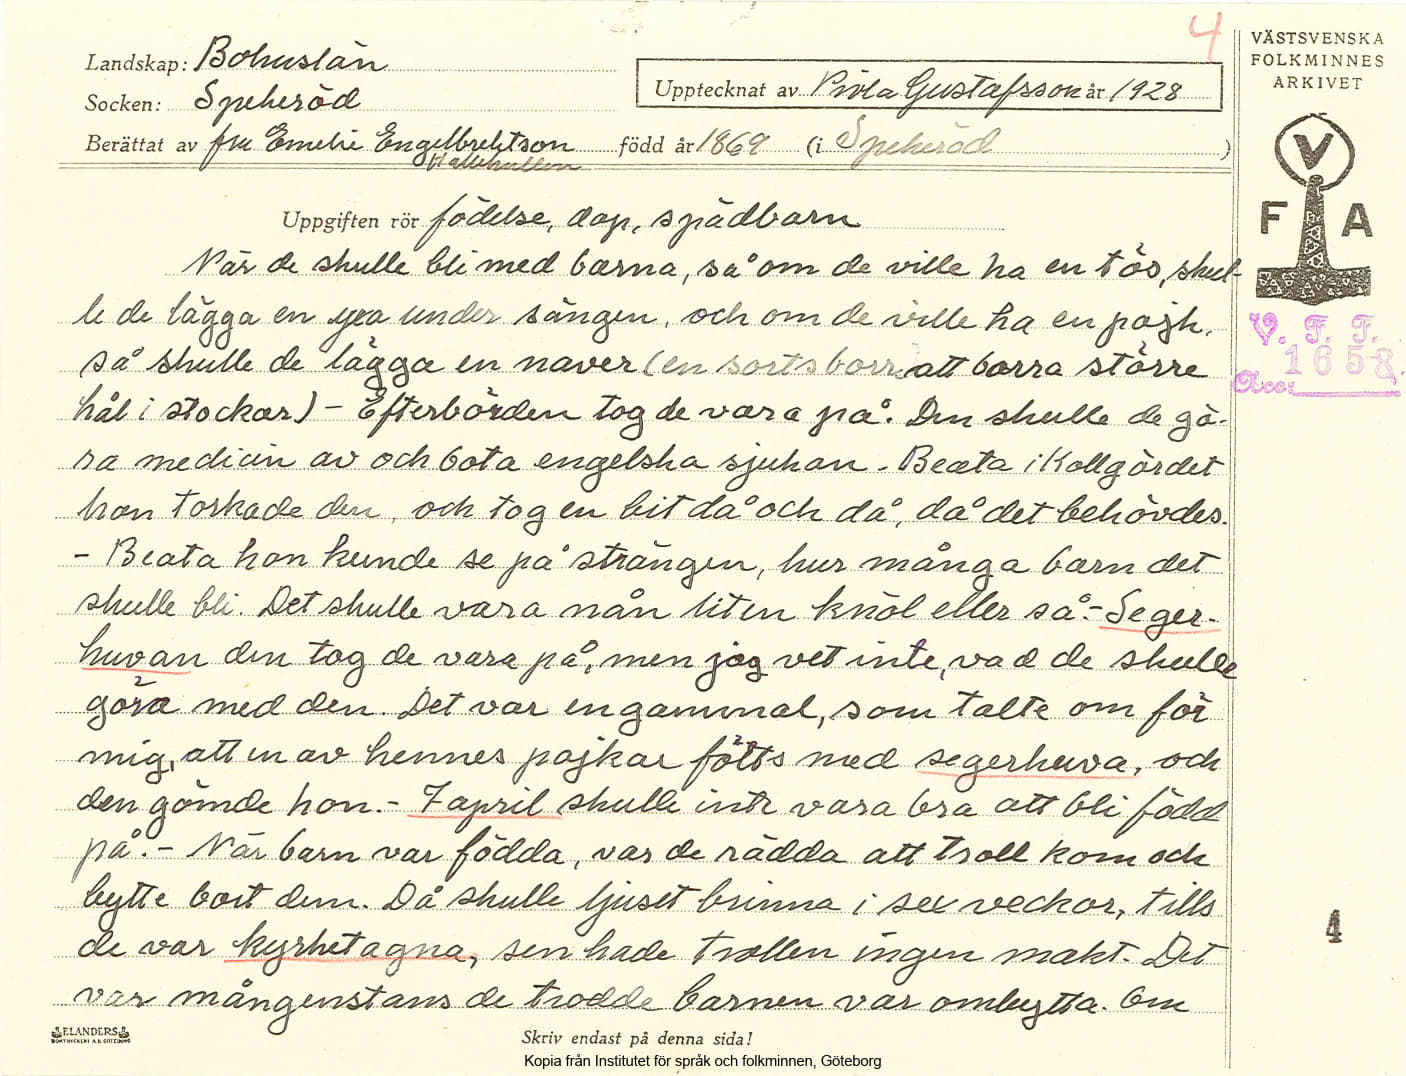 4
VÄSTSVENSKA
FOLKMINNES
ARKIVET
Landskap: Bohuslän
Socken: Spekeröd
Upptecknat av Gustafsson år 1928
Berättat av fru Emelie Engelbrektson född år 1869 (i Spekeröd )
Uppgiften rör födelse, dop, spädbarn
V
F A
När de skulle bli med barna, så om de ville ha en tös, skul-
le de lägga en yxa under sängen, och om de ville ha en pojk,
så skulle de lägga en naver (en sorts borr att borra större
hål i stockar) - Efterbörden tog de vara på. Den skulle de gö-
ra medicin av och bota engelska sjukan - Beata i Kollgärdet
hon torkade den, och tog en bit då och då, då det behövdes.
- Beata hon kunde se på strängen, hur många barn det
skulle bli. Det skulle vara nån liten knöl eller så. - Seger-
huvan den tog de vara på, men jag vet inte, vad de skulle
göra med den. Det var en gammal, som talte om för
mig, att en av hennes pojkar fötts med segerhuva, och
den gömde hon. - 7 april skulle inte vara bra att bli född
på. - När barn var födda, var de rädda att troll kom och
bytte bort dem. Då skulle ljuset brinna i sex veckor, tills
de var kyrketagna, sen hade trollen ingen makt. Det
var mångenstans de trodde barnen var ombytta. Om
V. F. F.
1658
Acc:
4
ELANDERS
BOKTRYCKERI A.B. GÖTEBORG
Skriv endast på denna sida!
Kopia från Institutet för språk och folkminnen, Göteborg